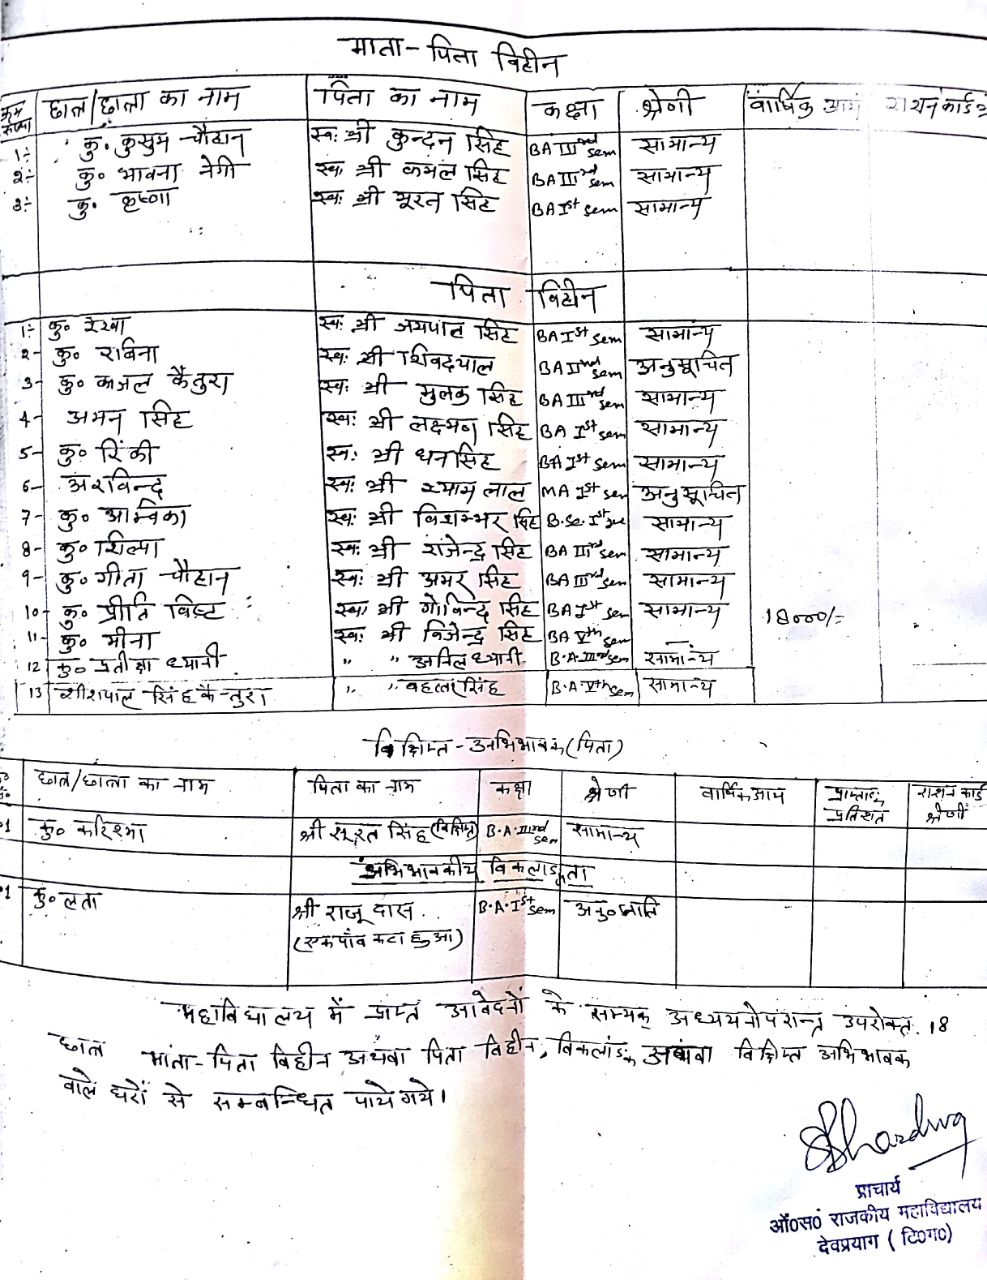 माता-पिता विहीन
क्रम संख्या छात्र/छात्रा का नाम पिता का नाम कक्षा श्रेणी वार्षिक आय राशनकार्ड
1:- कु. कुसुम चौहान स्वः श्री कुन्दन सिंह BA IIInd sem सामान्य
2:- कु० भावना नेगी स्वः श्री कमल सिंह BA IIIrd sem सामान्य
3:- कु० कृष्णा स्वः श्री सूरत सिंह BA Ist sem सामान्य
पिता विहीन
1:- कु० रेखा स्वः श्री जयपाल सिंह BA Ist sem सामान्य
2- कु० रविना स्वः श्री शिवदयाल BA IInd sem अनुसूचित
3- कु० काजल कैंतुरा स्वः श्री मुलकु सिंह BA IIInd sem सामान्य
4- अमन सिंह स्वः श्री लक्ष्मण सिंह BA Ist sem सामान्य
5- कु० रिंकी स्वः श्री धनसिंह BA Ist sem सामान्य
6- अरविन्द स्वः श्री श्याम लाल MA Ist sem अनुसूचित
7- कु० अम्बिका स्वः श्री विशम्भर सिंह B.Sc. Ist सामान्य
8- कु० शिल्पा स्वः श्री राजेन्द्र सिंह BA IIIrd sem सामान्य
9- कु० गीता चौहान स्वः श्री अमर सिंह BA IIIrd sem सामान्य
10- कु० प्रीति बिष्ट स्वः श्री गोविन्द सिंह BA Ist sem सामान्य 18000/=
11- कु० मीना स्वः श्री विजेन्द्र सिंह BA Vth sem —
12 कु० प्रतीक्षा ध्यानी " " अनिल ध्यानी B.A. IIInd sem सामान्य
13 शीशपाल सिंह कैन्तुरा " " सिंह B.A. Vth sem सामान्य
विक्षिप्त-अभिभावक (पिता)
छात्र/छात्रा का नाम पिता का नाम कक्षा श्रेणी वार्षिक आय प्राप्तांक प्रतिशत राशन कार्ड श्रेणी
01 कु० करिश्मा श्री सूरत सिंह (विक्षिप्त) B.A. IIInd sem सामान्य
अभिभावकीय विकलाङ्गता
01 कु० लता श्री राजू दास B.A. Ist sem अनु० जाति
(एक पाँव कटा हुआ)
महाविद्यालय में प्राप्त आवेदनों के सम्यक् अध्ययनोपरान्त उपरोक्त 18
छात्र माता-पिता विहीन अथवा पिता विहीन, विकलांङ्ग अथवा विक्षिप्त अभिभावक
वाले घरों से सम्बन्धित पाये गये।
प्राचार्य
ओं०सं० राजकीय महाविद्यालय
देवप्रयाग (टि०ग०)